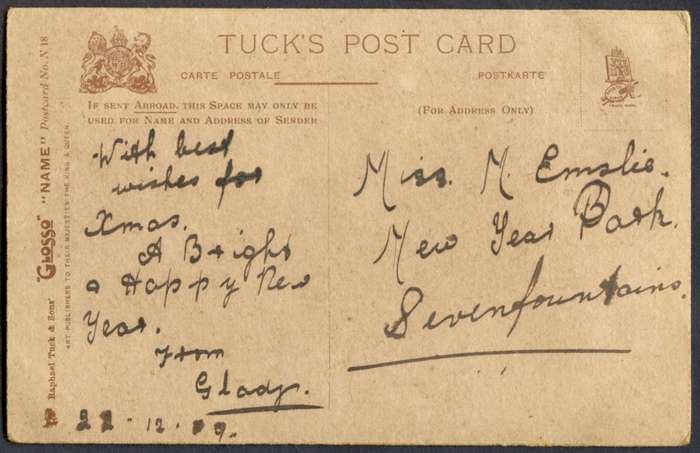 TUCK'S POST CARD
CARTE POSTALE
POSTKARTE
IF SENT ABROAD, THIS SPACE MAY ONLY BE
USED FOR NAME AND ADDRESS OF SENDER
(FOR ADDRESS ONLY)
With best
wishes for
Xmas.
A Bright
& Happy New
Year.
From
Glady.
22-12-09.
Miss. M. Emslie.
New Year Park.
Sevenfountains.
Raphael Tuck & Sons' "GLOSSO" "NAME" Postcard No. N 18
ART PUBLISHERS TO THEIR MAJESTIES THE KING & QUEEN